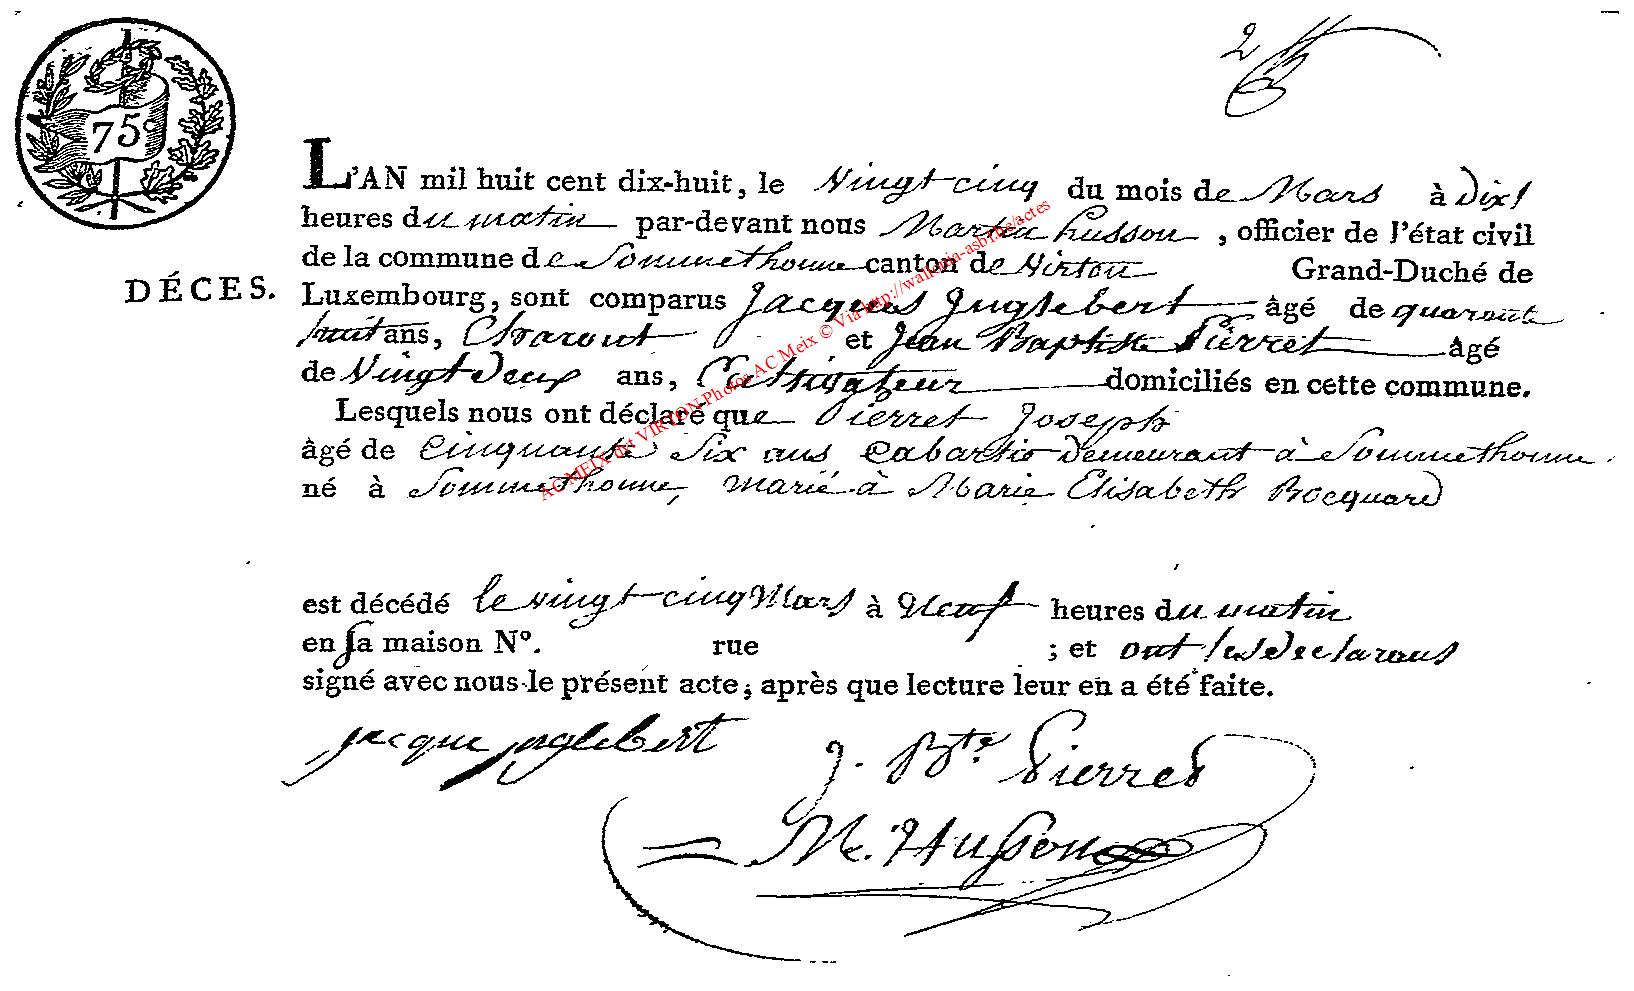 2
75
L'AN mil huit cent dix-huit, le Vingt cinq du mois de Mars à dix
heures du matin par-devant nous Martin husson, officier de l'état civil
de la commune de Sommethonne canton de Virton Grand-Duché de
DÉCES.
Luxembourg, sont comparus Jacques Inglebert âgé de quarante
huit ans, Charont et Jean Baptiste Pierret âgé
de Vingt deux ans, Cultivateur domiciliés en cette commune.
Lesquels nous ont déclaré que Pierret Joseph
âgé de Cinquante Six ans Cabartio demeurant à Sommethonne
né à Sommethonne, marié à Marie Elisabeth Rocquard
est décédé le vingt cinq Mars à Neuf heures du matin
en sa maison N°. rue ; et ont les declarans
signé avec nous le présent acte, après que lecture leur en a été faite.
jacque jnglebert
J. Bte. Pierret
M. Husson
AC MEIX dvt VIRTON Photos AC Meix © Via http://wallonia-asbl.be/actes